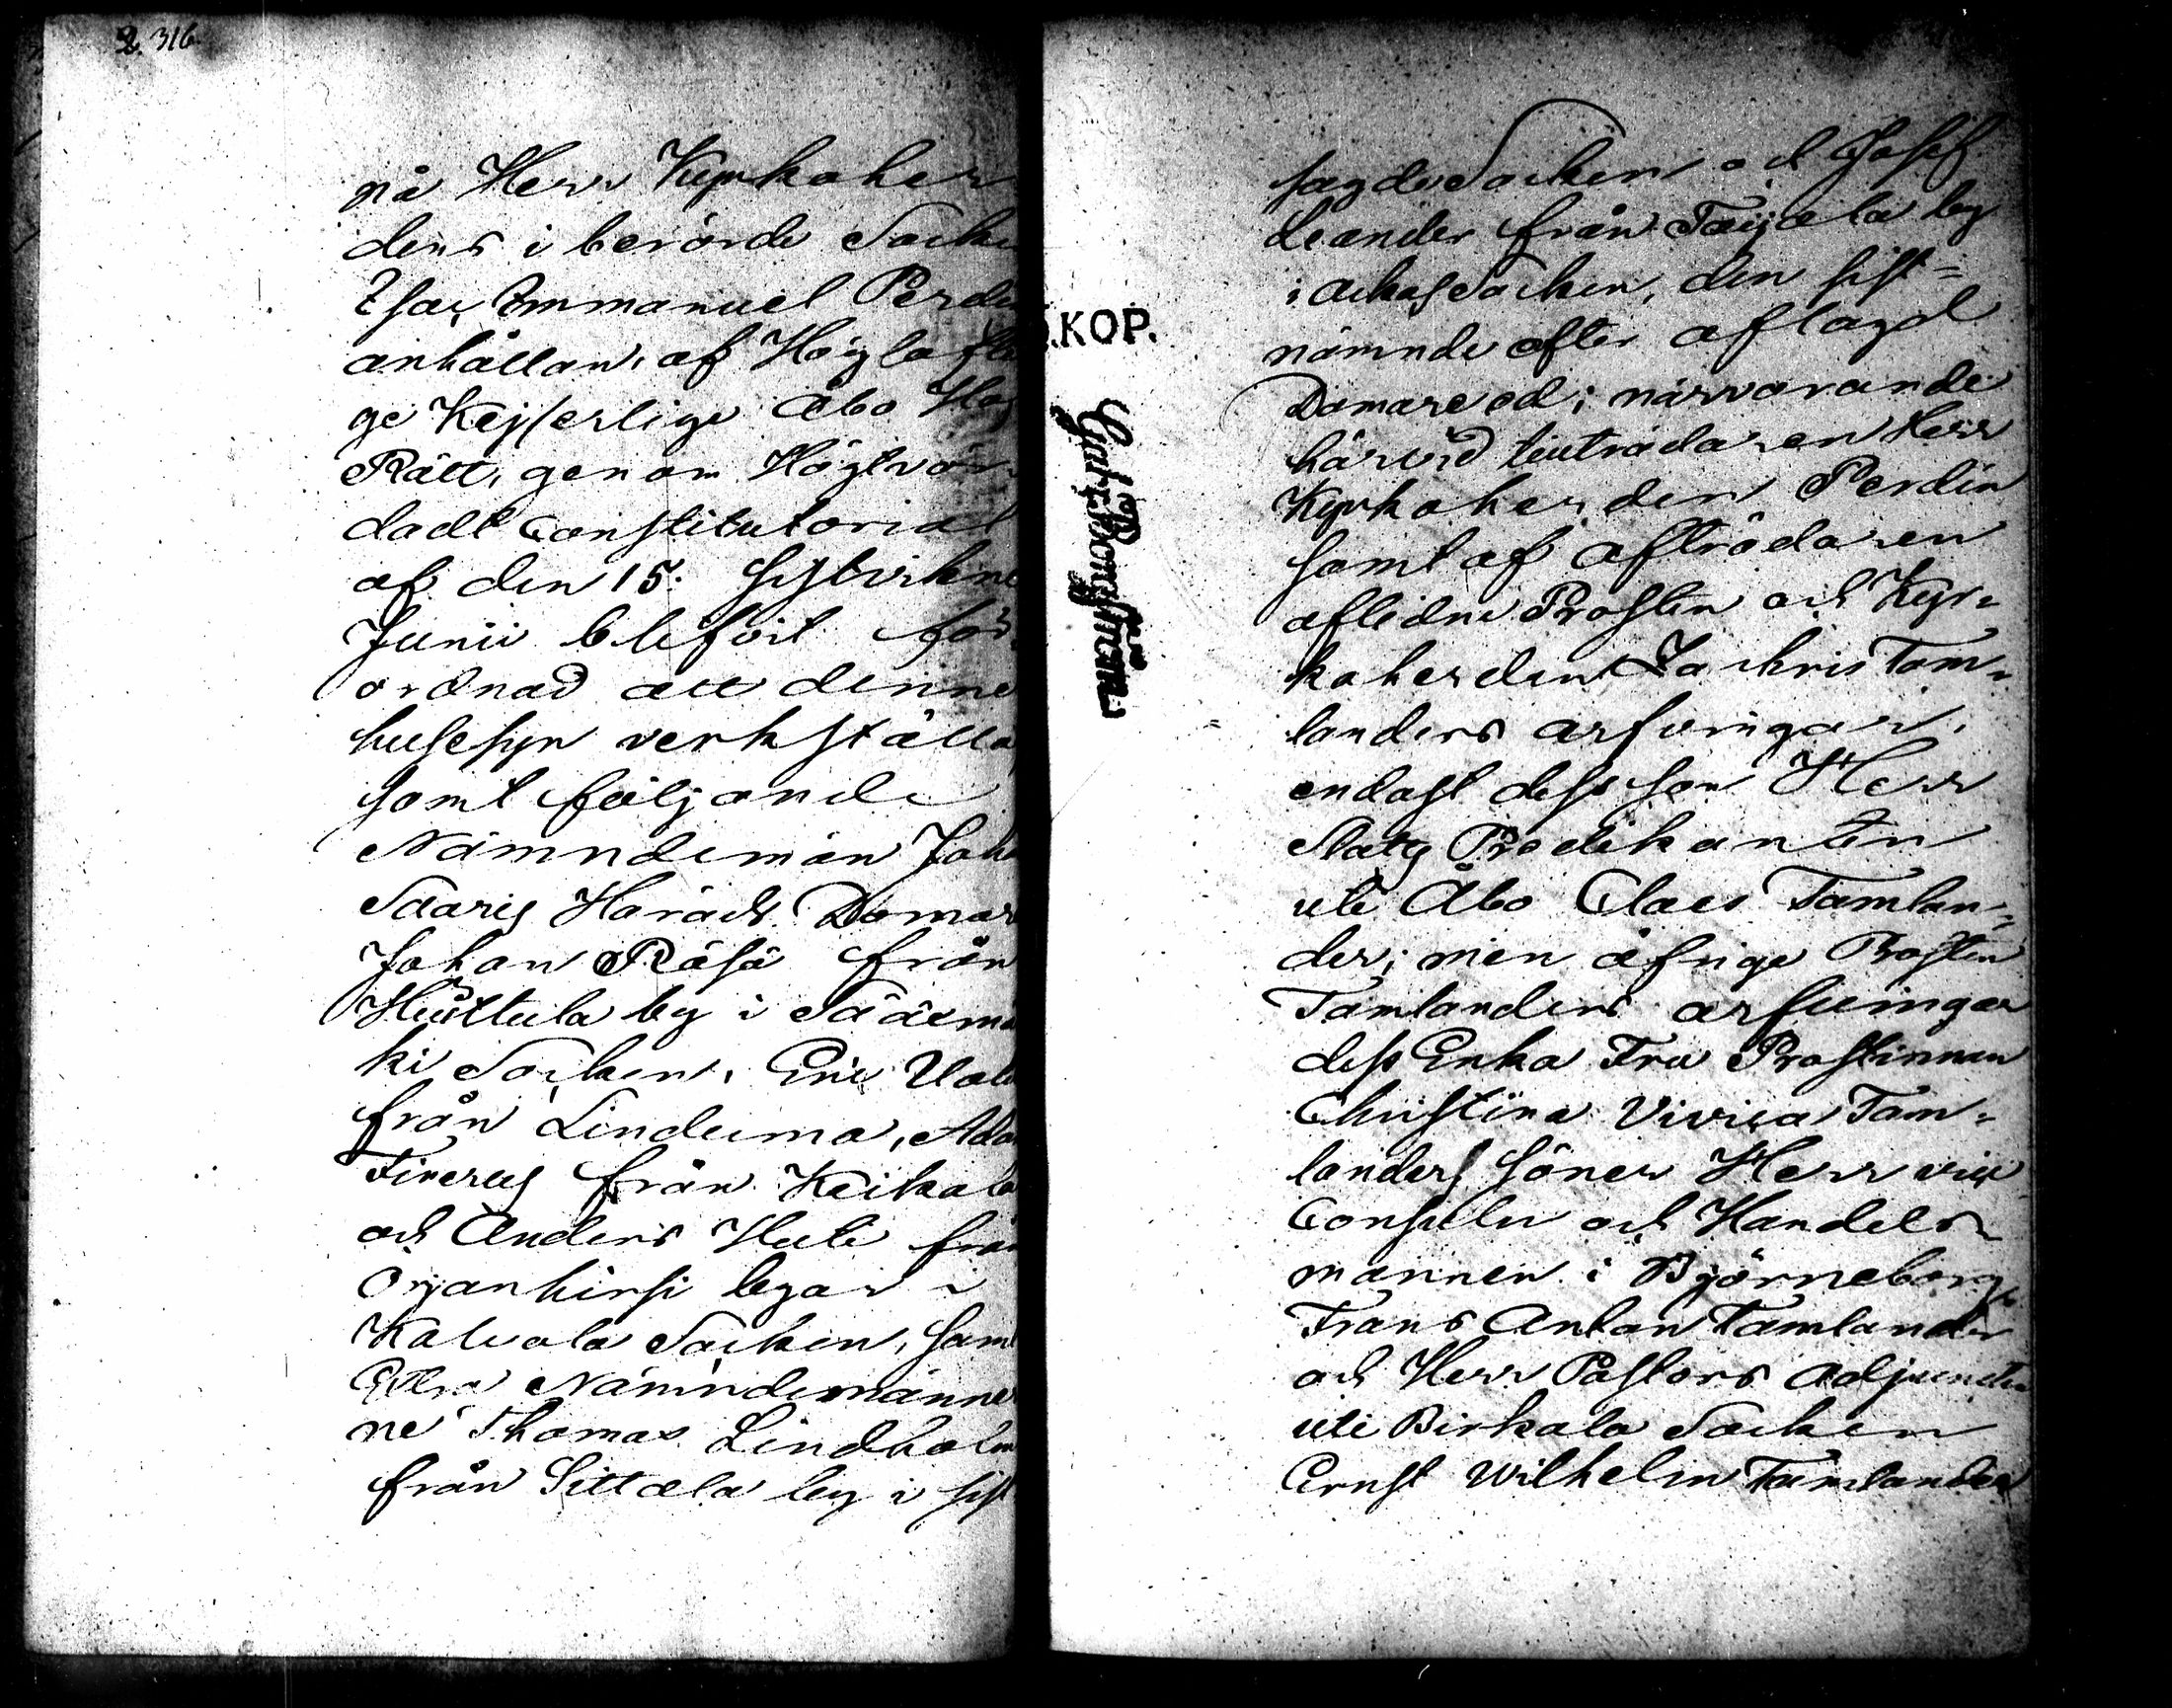 2. 316
på Herr Kyrkoher
dens i berörde Socke
Isac Emmanuel Perdi
anhållan, af Höglofli
ge Kejserlige Åbo Hof
Rätt, genom Högtvör
dadt Constitutorial
af den 15. sistvikne
Junii blifvit för
ordnad att denne
husesyn verkställa,
samt följande
Nämndemän Joh
Saaris Härads Domar
Johan Räfsä från
Huittula by i Sääxmä
ki Socken, Eric Uoti
från Lindeima, Ada
Finerus från Keikala
och Anders Huti från
Orjanhirsi byar i
Kalvola Socken, samt
Extra Nämndemänne
ne Thomas Lindholm
från Sittala by i sist
S.KOP.
Gust. Bongman
sagde Socken och Josef
Leander från Taijala by
i Ackas Socken, den sist=
nämnde efter aflagd
Domare ed; närvarande
härvid tillträdaren Herr
Kyrkoherden Perdin
samt af afträdaren
aflidne Prosten och Kyr=
koherden Zachris Tam=
landers arfvingar,
endast dess son Herr
Slotts Predikanten
uti Åbo Claes Tamlan=
der; men öfrige Prosten
Tamlanders arfvingar
dess Enka Fru Prostinnan
Christina Vivica Tam=
landers söner Herr vice
Consuln och Handels=
mannen i Björneborg
Frans Anton Tamlander
och Herr Pastors Adjuncten
uti Birkala Socken
Ernst Wilhelm Tamlander